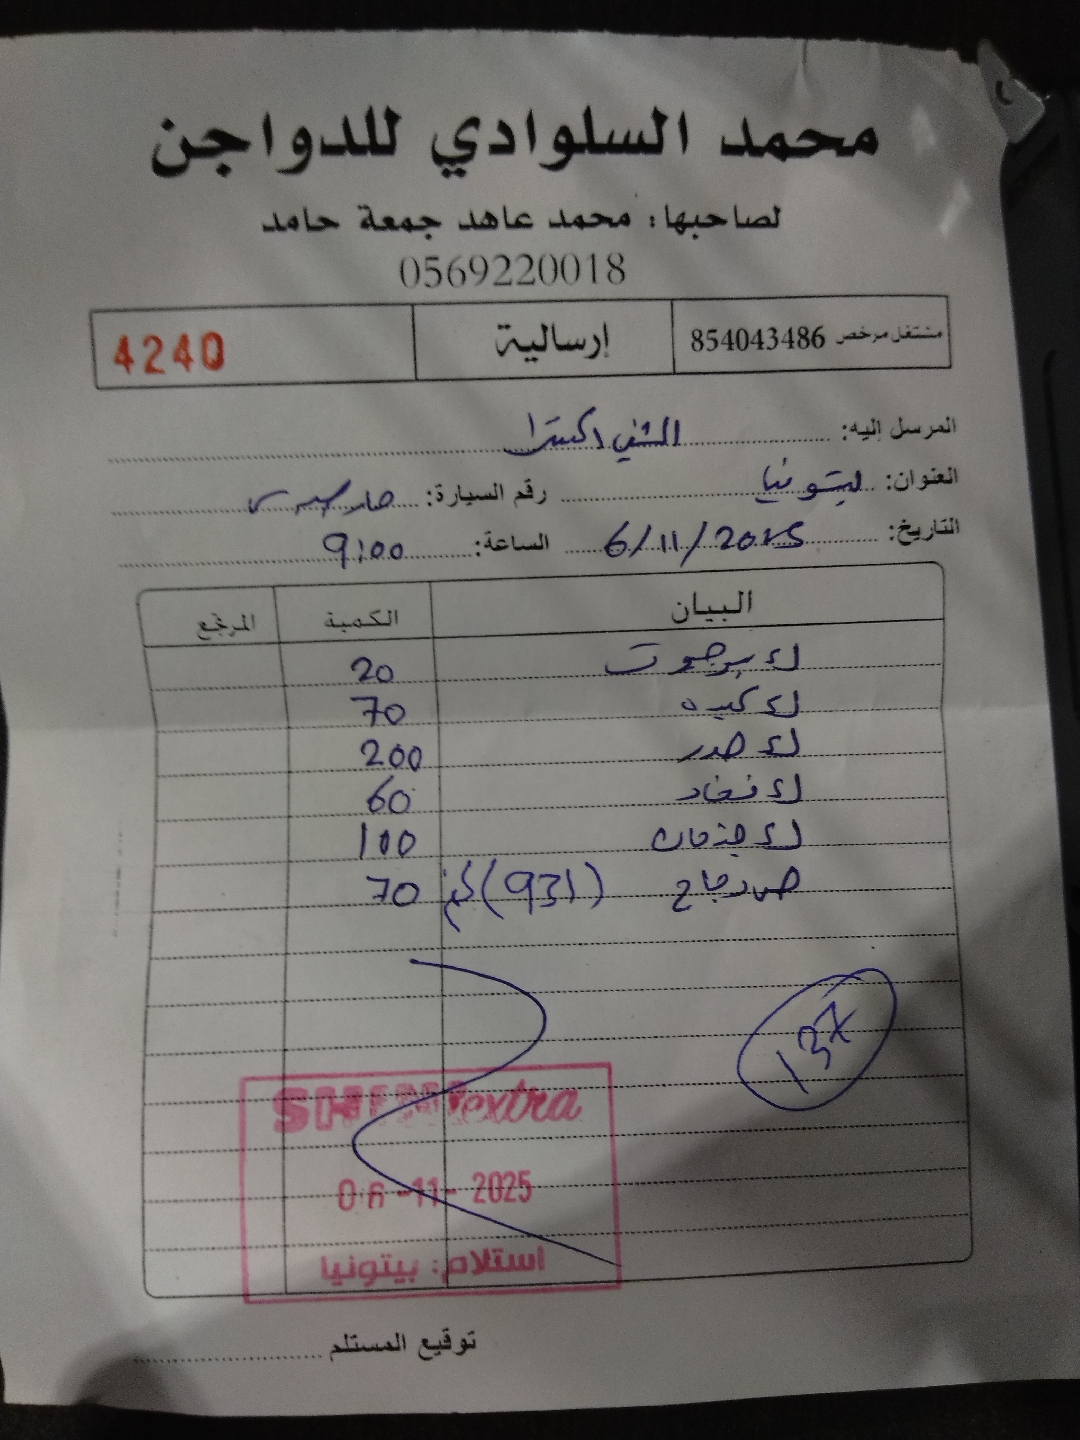 محمد السلوادي للدواجن
لصاحبها: محمد عاهد جمعة حامد
0569220018
مشتغل مرخص 854043486 إرسالية 4240
المرسل إليه: الشني اكسترا
العنوان: بيتونيا رقم السيارة:
التاريخ: 6/11/2025 الساعة: 9:00
البيان الكمية المرتجع
ك 20
ك كبده 70
ك صدر 200
ك فخاد 60
ك 100
دجاج (931) كغم 70
137
extra
06-11-2025
استلام: بيتونيا
توقيع المستلم